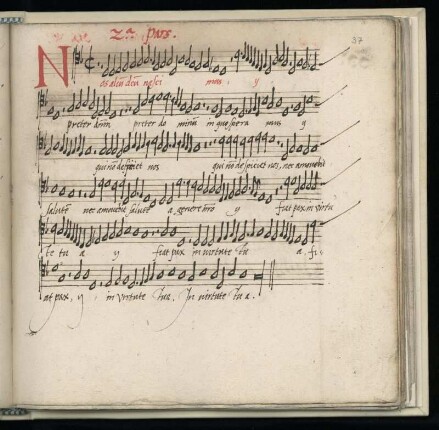 2a pars. 37
Nos aliu deu nesci mus y
preter dnm preter do minu in quo spera mus y
qui no despiciet nos qui no despiciet nos, nec amovebit
salute nec amovebit salute a genere nro y fiat pax in virtu
te tu a y fiat pax in virtute tu a, fi
at pax, y in virtute tua, In virtute tua.